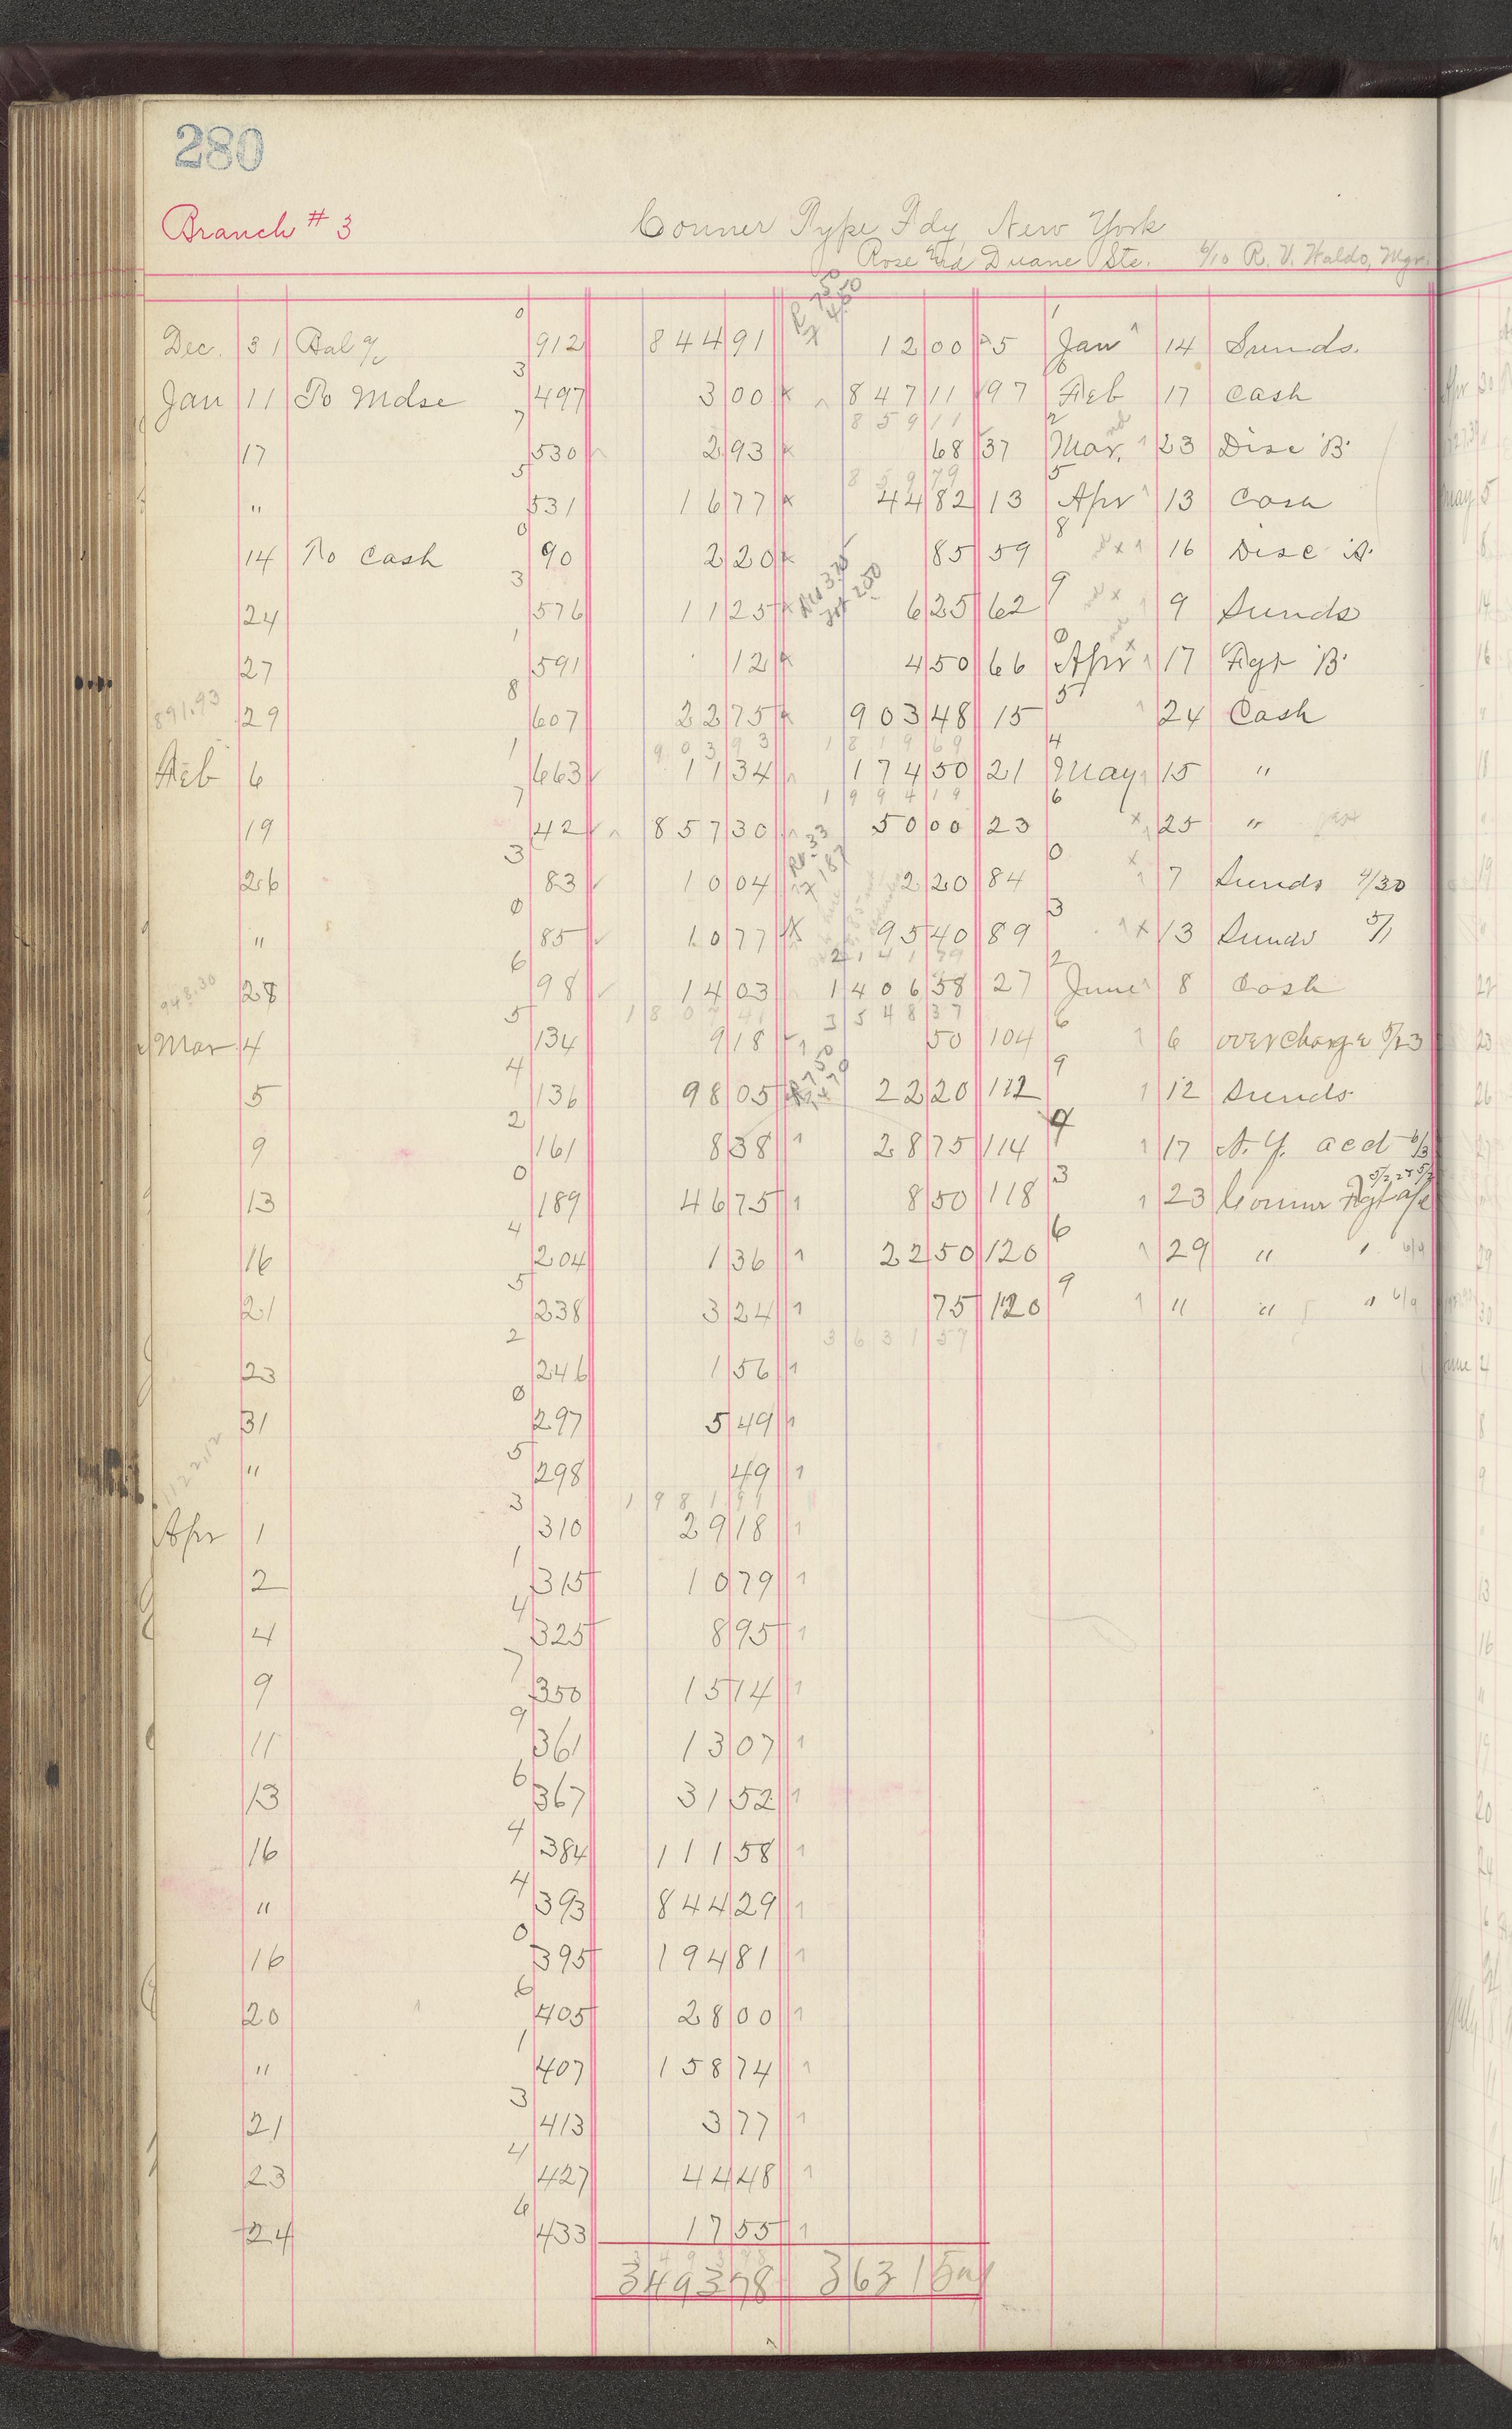 280
Branch # 3
Conner Type Fdy, New York
Rose and Duane Sts. 6/10 R. V. Waldo, Mgr.
Dec. 31 Bal a/c 0 912 844 91 12 00 5 1 Jan 14 Sunds.
Jan 11 To Mdse 3 497 3 00 847 11 97 6 Feb 17 Cash
859 11
17 7 530 2 93 68 37 2 Mar. 23 Disc "B"
" 5 531 16 77 44 82 13 5 Apr 13 Cash
14 To Cash 0 90 2 20 85 59 8 16 Disc "A"
24 3 576 11 25 6 25 62 9 9 Sunds
27 1 591 12 4 50 66 0 Apr 17 Fgt "B"
891.93 29 8 607 22 75 903 48 15 5 24 Cash
903 93 1819 69
Feb 6 1 663 11 34 174 50 21 4 May 15 "
1994 19
19 7 42 857 30 50 00 23 6 25 "
26 3 83 10 04 2 20 84 0 7 Sunds 4/30
" 0 85 10 77 95 40 89 3 13 Sunds 5/1
948.30 28 6 98 14 03 1406 58 27 2 June 8 Cash
3548 37
Mar 4 5 134 9 18 50 104 6 6 overcharge 5/23
5 4 136 98 05 22 20 112 9 12 Sunds
9 2 161 8 38 28 75 114 4 17 N.Y. acct 6/3
13 0 189 46 75 8 50 118 3 23 Conner Fgt a/c
16 4 204 1 36 22 50 120 6 29 " " 6/9
21 5 238 3 24 75 120 9 " " " 6/9
3631 57
23 2 246 1 56
31 0 297 5 49
1122.12 " 5 298 49
1981 99
Apr 1 3 310 29 18
2 1 315 10 79
4 4 325 8 95
9 7 350 15 14
11 9 361 13 07
13 6 367 31 52
16 4 384 111 58
" 4 393 844 29
16 0 395 194 81
20 6 405 28 00
" 1 407 158 74
21 3 413 3 77
23 4 427 44 48
24 6 433 17 55
3493 78
3493 78 3631 5